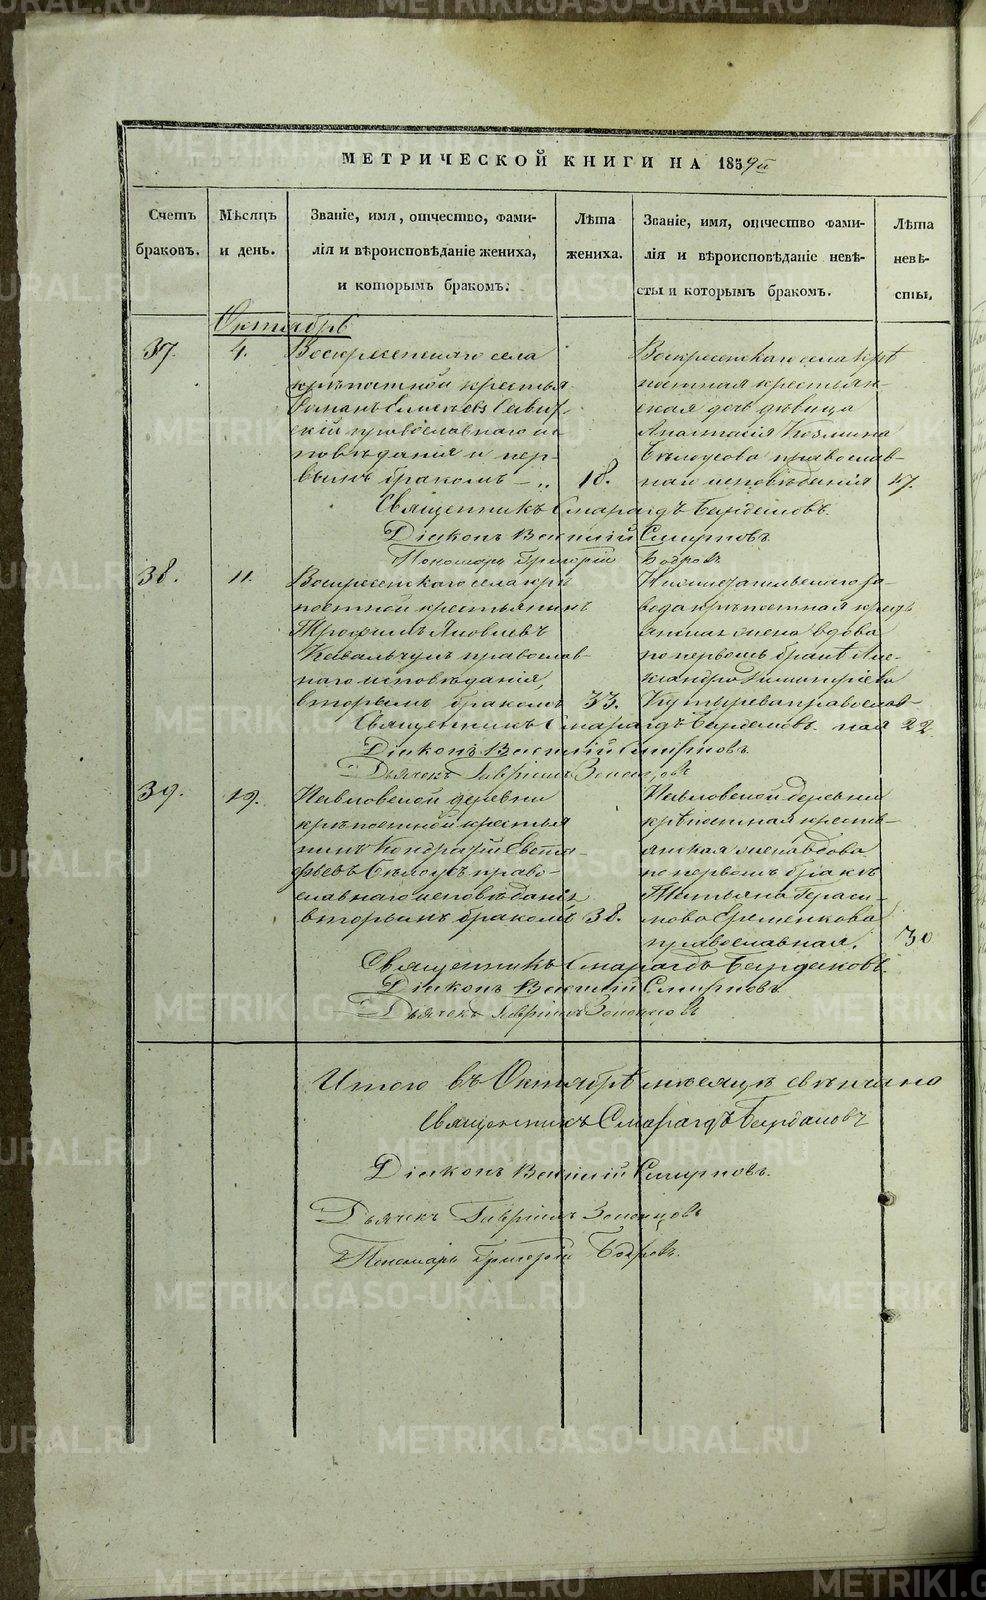 МЕТРИЧЕСКОЙ КНИГИ НА 1859й
Счетъ браковъ.
Мѣсяцъ и день.
Званіе, имя, отчество, фами-
лія и вѣроисповѣданіе жениха,
и которымъ бракомъ.
Лѣта жениха.
Званіе, имя, отчество фами-
лія и вѣроисповѣданіе невѣ-
сты и которымъ бракомъ.
Лѣта невѣ-
сты.
Октябрь
37.
4.
Воскресенскаго села
крѣпостной крестья
Романъ Елисѣевъ
православнаго ис
повѣданія и пер-
вымъ бракомъ
18.
Воскресенскаго села крѣ
постная крестьян-
ская дочь дѣвица
Анастасія Козмина
Бѣлоусова православ-
наго исповѣданія
17.
Священникъ Смарагдъ Бирдюковъ
Діаконъ Василій Смирновъ
Пономарь Григорій Бобровъ
38.
11.
Воскресенскаго села крѣ
постной крестьянинъ
Трофимъ Яковлевъ
Ковальчукъ православ-
наго исповѣданія,
вторымъ бракомъ
33.
Нижнетагильскаго за-
вода крѣпостная кресть
янская жена вдова
по первомъ бракѣ Але-
ксандра Димитріева
православ-
ная
22.
Священникъ Смарагдъ Бирдюковъ
Діаконъ Василій Смирновъ
Дьячекъ Гавріилъ
39.
19.
Павловской деревни
крѣпостной крестья
нинъ Кондратій Евста
фьевъ Бѣлоусъ право-
славнаго исповѣданія
вторымъ бракомъ
38.
Павловской деревни
крѣпостная кресть-
янская жена вдова
по первомъ бракѣ
Татьяна Гераси-
мова Ерёменкова
православная.
30
Священникъ Смарагдъ Бирдюковъ.
Діаконъ Василій Смирновъ
Дьячекъ Гавріилъ
Итого въ Октябрѣ мѣсяцѣ свѣнчано
Священникъ Смарагдъ Бирдюковъ
Діаконъ Василій Смирновъ.
Дьячекъ Гавріилъ
Пономарь Григорій Бобровъ.
METRIKI.GASO-URAL.RU